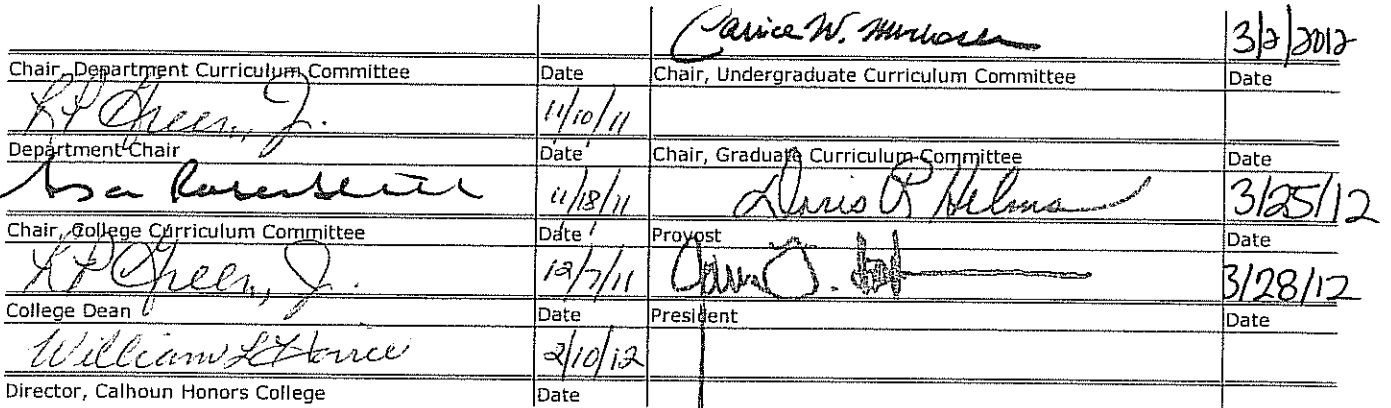 Janice W. 3/2/2012
Chair, Department Curriculum Committee Date Chair, Undergraduate Curriculum Committee Date
Green, Jr. 11/10/11
Department Chair Date Chair, Graduate Curriculum Committee Date
11/18/11 Doris R Helms 3/25/12
Chair, College Curriculum Committee Date Provost Date
Green, Jr. 12/7/11 3/28/12
College Dean Date President Date
William 2/10/12
Director, Calhoun Honors College Date